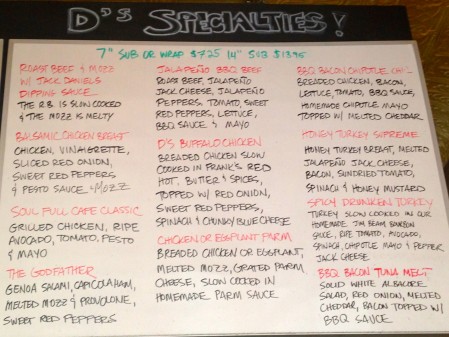 D's SPECIALTIES!
7" SUB OR WRAP $7.25 14" SUB $13.95
ROAST BEEF & MOZZ
W/ JACK DANIELS
DIPPING SAUCE...
THE R.B. IS SLOW COOKED
& THE MOZZ IS MELTY
BALSAMIC CHICKEN BREAST
CHICKEN, VINAIGRETTE,
SLICED RED ONION,
SWEET RED PEPPERS
& PESTO SAUCE & MOZZ
SOUL FULL CAFE CLASSIC
GRILLED CHICKEN, RIPE
AVOCADO, TOMATO, PESTO
& MAYO
THE GODFATHER
GENOA SALAMI, CAPICOLA, HAM,
MELTED MOZZ & PROVOLONE,
SWEET RED PEPPERS
JALAPEÑO BBQ BEEF
ROAST BEEF, JALAPEÑO
JACK CHEESE, JALAPEÑO
PEPPERS, TOMATO, SWEET
RED PEPPERS, LETTUCE,
BBQ SAUCE & MAYO
D'S BUFFALO CHICKEN
BREADED CHICKEN SLOW
COOKED IN FRANK'S RED
HOT, BUTTER & SPICES,
TOPPED W/ RED ONION,
SWEET RED PEPPERS,
SPINACH & CHUNKY BLUE CHEESE
CHICKEN OR EGGPLANT PARM
BREADED CHICKEN OR EGGPLANT,
MELTED MOZZ, GRATED PARM
CHEESE, SLOW COOKED IN
HOMEMADE PARM SAUCE
BBQ BACON CHIPOTLE
BREADED CHICKEN, BACON,
LETTUCE, TOMATO, BBQ SAUCE,
HOMEMADE CHIPOTLE MAYO
TOPPED W/ MELTED CHEDDAR
HONEY TURKEY SUPREME
HONEY TURKEY BREAST, MELTED
JALAPEÑO JACK CHEESE,
BACON, SUNDRIED TOMATO,
SPINACH & HONEY MUSTARD
SPICY DRUNKEN TURKEY
TURKEY SLOW COOKED IN OUR
HOMEMADE JIM BEAM BOURBON
SAUCE, RIPE TOMATO, AVOCADO,
SPINACH, CHIPOTLE MAYO & PEPPER
JACK CHEESE
BBQ BACON TUNA MELT
SOLID WHITE ALBACORE
SALAD, RED ONION, MELTED
CHEDDAR, BACON TOPPED W/
BBQ SAUCE